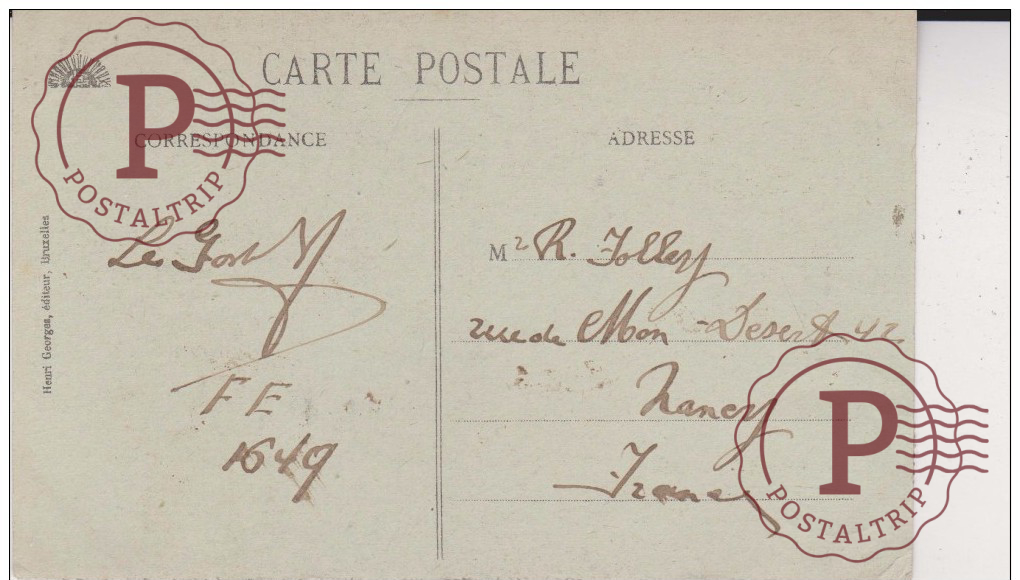 CARTE POSTALE
CORRESPONDANCE
ADRESSE
P
POSTALTRIP
Henri Georges, éditeur, Bruxelles
Le
F E
1649
Mr R. Jolley
rue de Mon-Desert 42
Nancy
France
P
POSTALTRIP